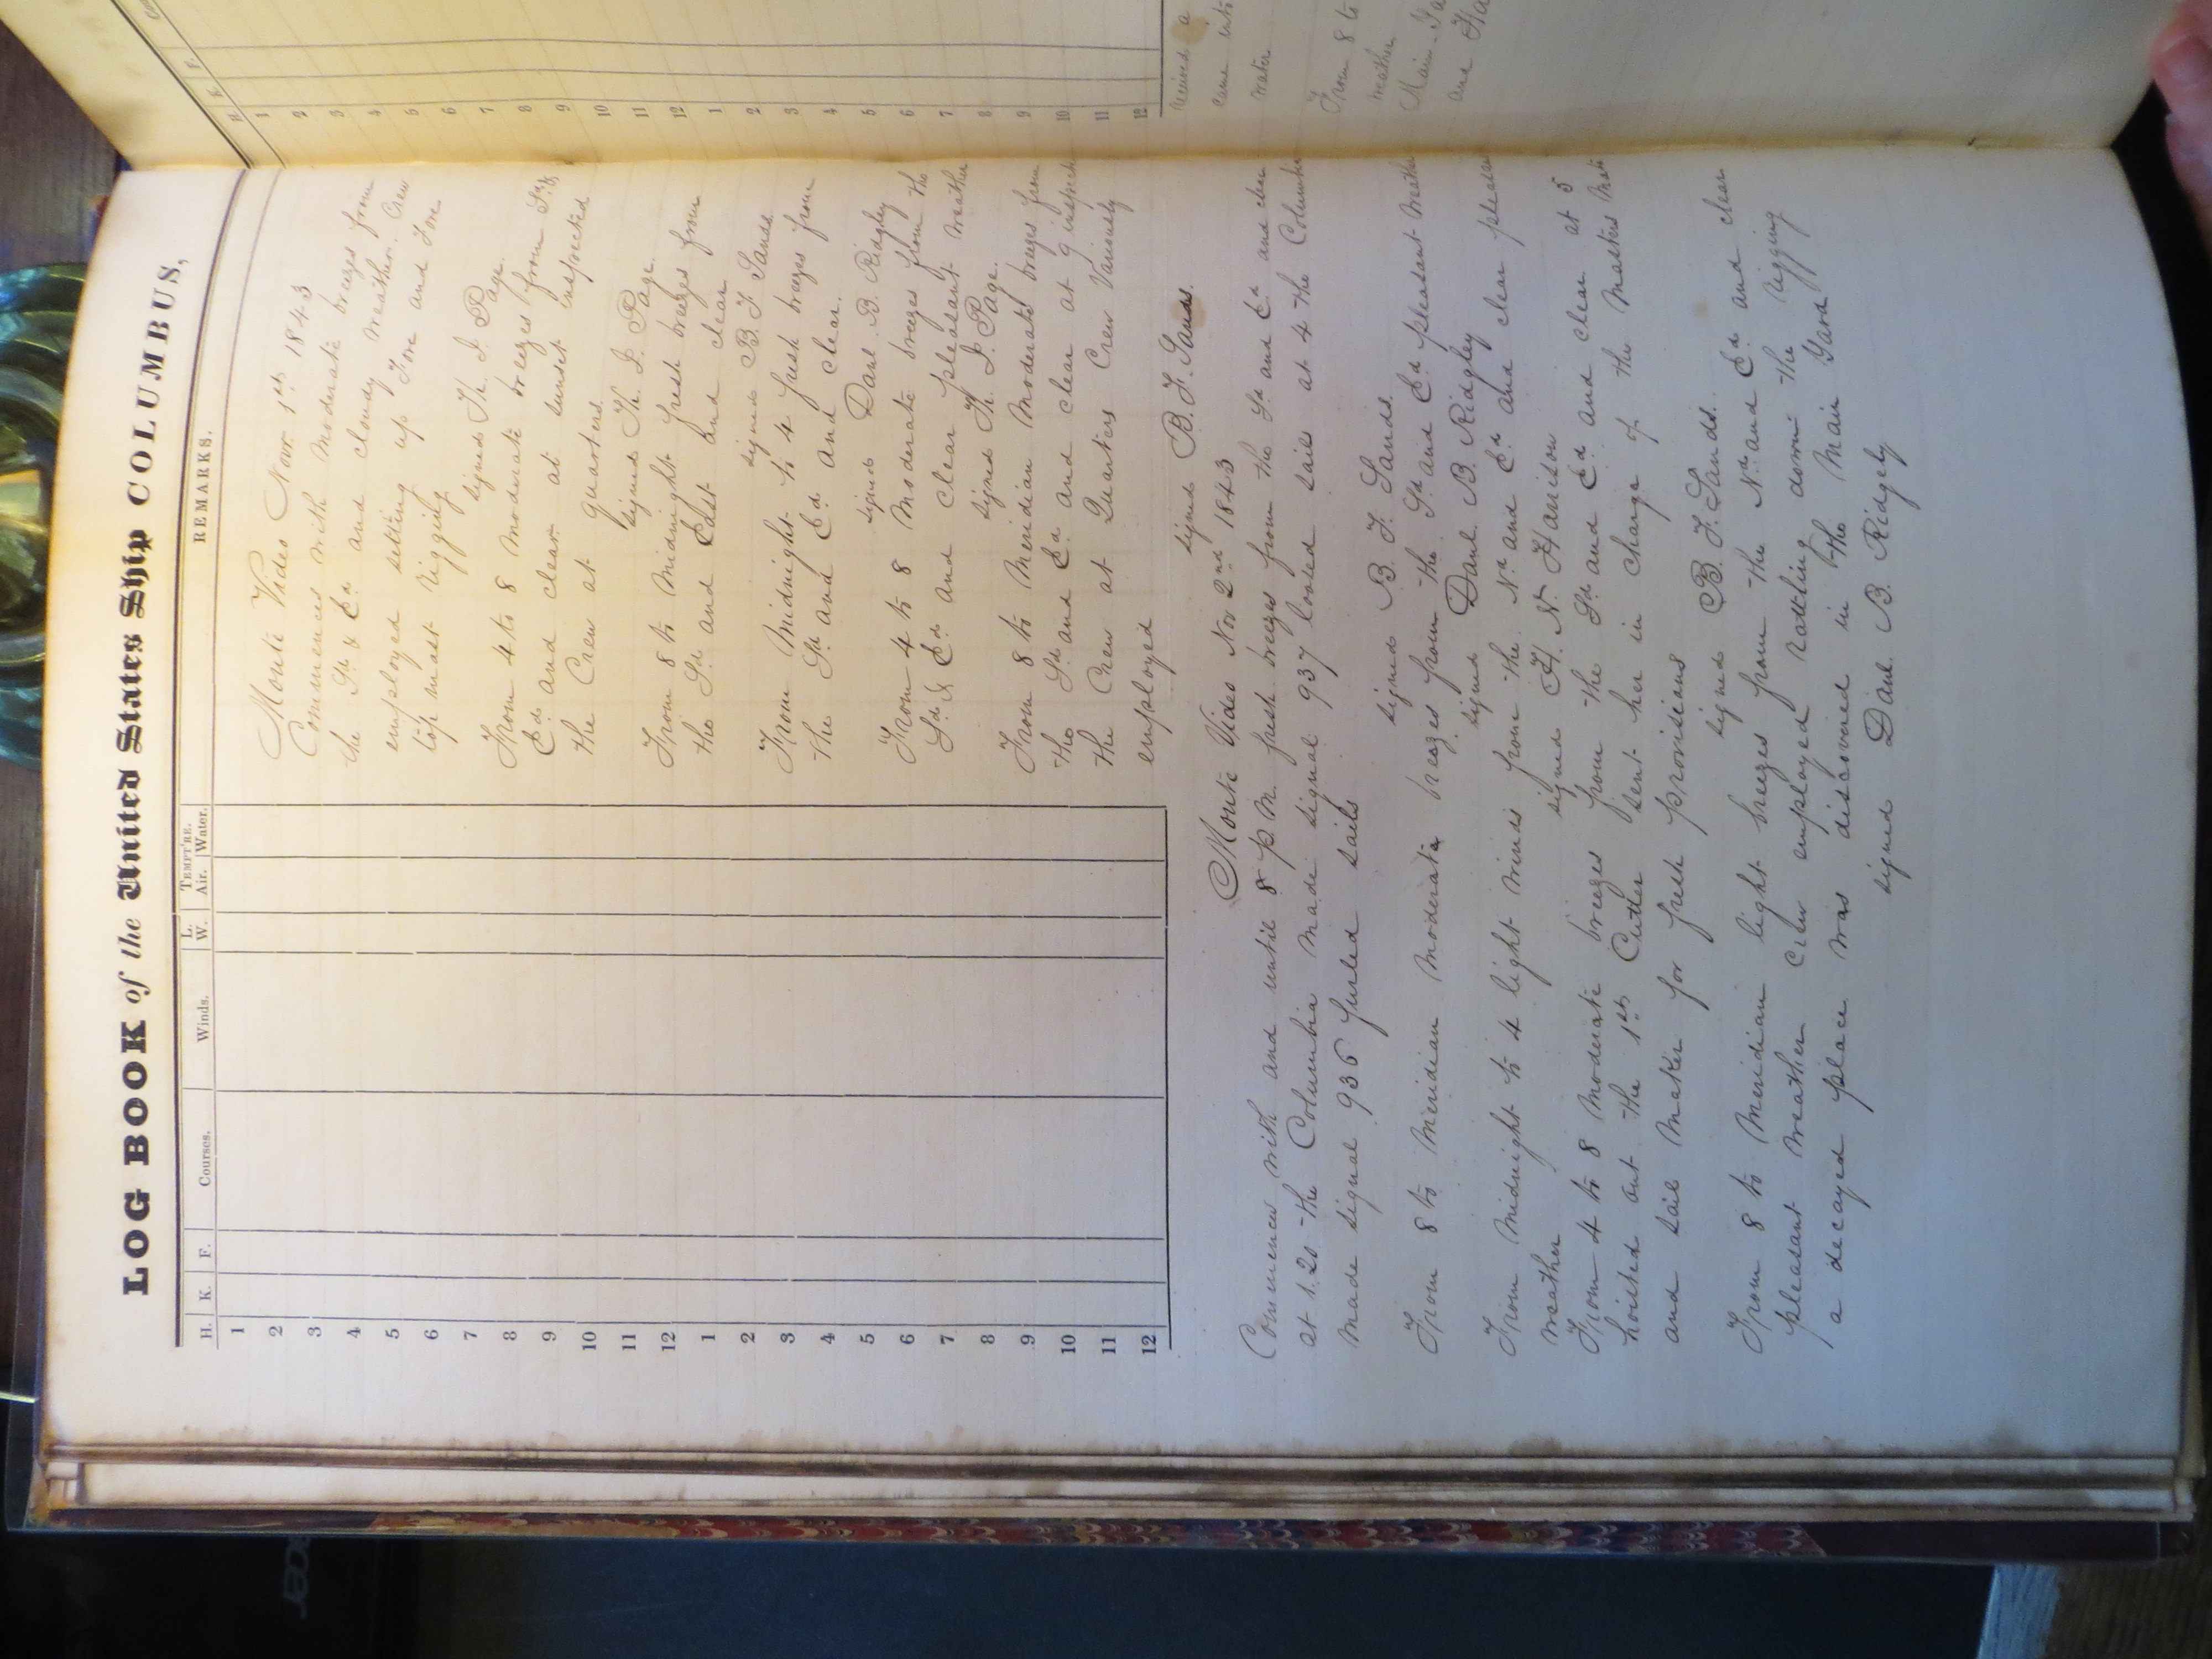 LOG BOOK of the United States Ship COLUMBUS,
H. K. F. Courses. Winds. L. W. TEMPT'RE. Air. Water. REMARKS.
1
2
3
4
5
6
7
8
9
10
11
12
1
2
3
4
5
6
7
8
9
10
11
12
Monte Video Novr. 1st 1843
Commences with moderate breezes from
the Sd & Ed and cloudy weather. Crew
employed setting up Fore and Fore
top mast rigging
signed Th. J. Page.
From 4 to 8 moderate breezes from Sd &
Ed and clear at sunset inspected
the Crew at quarters.
signed Th. J. Page.
From 8 to Midnight fresh breezes from
the Sd and East and clear
signed B. F. Sands
From Midnight to 4 fresh breezes from
the Sd and Ed and clear.
signed Danl. B. Ridgely
From 4 to 8 Moderate breezes from the
Sd & Ed and clear pleasant weather
signed Th. J. Page.
From 8 to Meridian Moderate breezes from
the Sd and Ed and clear at 9 inspect
the Crew at Quarters Crew Variously
employed
signed B. F. Sands.
Monte Video Nov 2nd 1843
Commences with and until 8 P.M. fresh breezes from the Sd and Ed and clear
at 1.20 the Columbia made signal 937 loosed sails at 4 the Columbia
made signal 936 furled sails
signed B. F. Sands.
From 8 to Meridian moderate breezes from the Sd and Ed pleasant weather
signed Danl. B. Ridgley
From Midnight to 4 light winds from the Nd and Ed and clear pleasant
weather signed H. N. Harrison
From 4 to 8 Moderate breezes from the Sd and Ed and clear at 5
hoisted out the 1st Cutter sent her in charge of the Masters Mate
and sail Maker for fresh provisions
signed B. F. Sands.
From 8 to Meridian light breezes from the Nd and Ed and clear
pleasant weather crew employed rattling down the rigging
a decayed place was discovered in the Main Yard
signed Danl. B. Ridgely
H. K. F.
1
2
3
4
5
6
7
8
9
10
11
12
1
2
3
4
5
6
7
8
9
10
11
12
received a
came into
water
From 8 to
weather
Main
and
acer